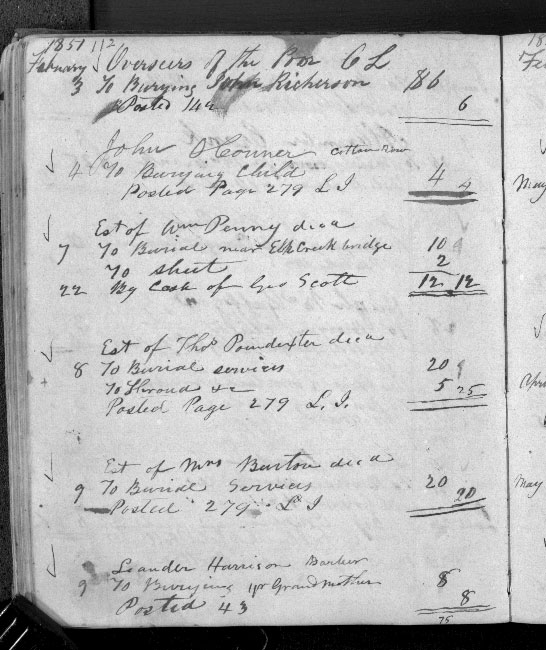 1851 112
February Overseers of the Poor C L
3 To Burying John Richerson $6
Posted 142 6
John O'Conner Cotton Row
4 To Burying Child 4
Posted Page 279 L I 4
Est of Wm Penny decd
7 To Burial near Elk Creek bridge 10
To Sheet 2
22 By Cash of Geo Scott 12 12
Est of Thos Poindexter decd
8 To Burial services 20
To Shroud &c 5 25
Posted Page 279 L. I.
Est of Mrs Burton decd
9 To Burial Services 20
Posted 279 L I 20
Leander Harrison Barber
9 To Burying yr Grand Mother 8
Posted 43 8
75
185
Fe
May
Apri
May